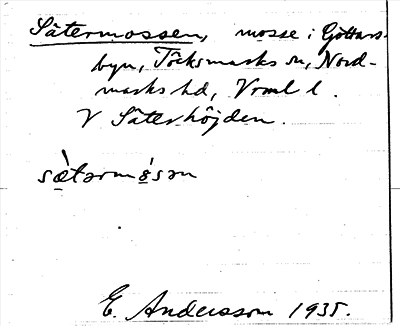 Sätermossen, mosse i Göttars-
byn, Töcksmarks sn, Nord-
marks hd, Vrml l.
V Säterhöjden.
sæ̀tərmǿsən
E. Andersson 1935.